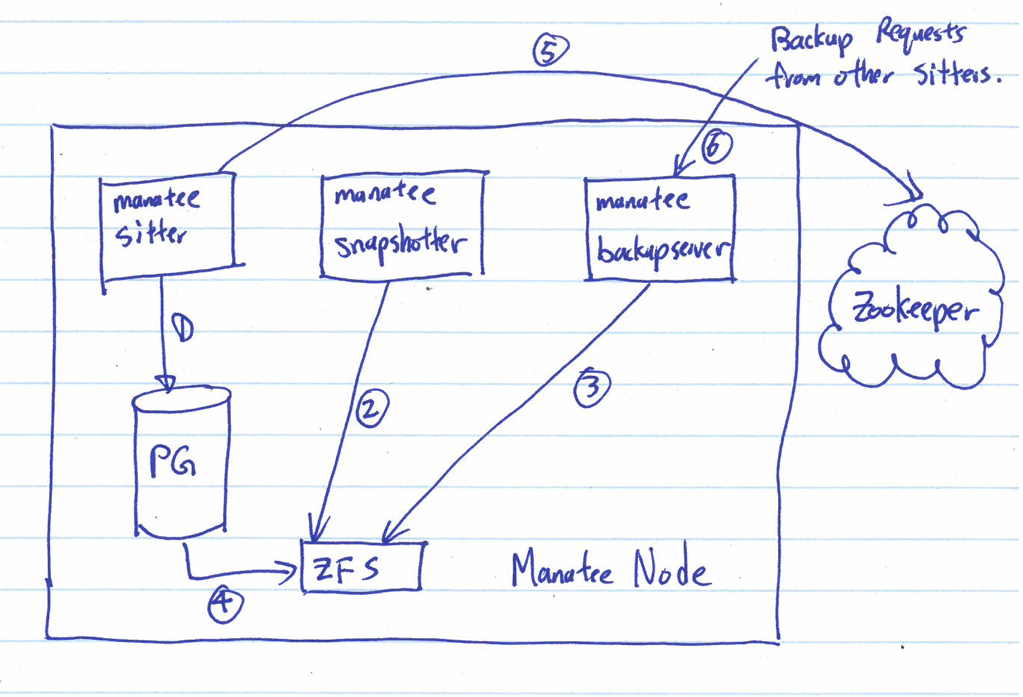 ⑤
Backup Requests
from other sitters.
⑥
manatee
sitter
manatee
snapshotter
manatee
backupserver
Zookeeper
①
②
③
PG
ZFS
Manatee Node
④